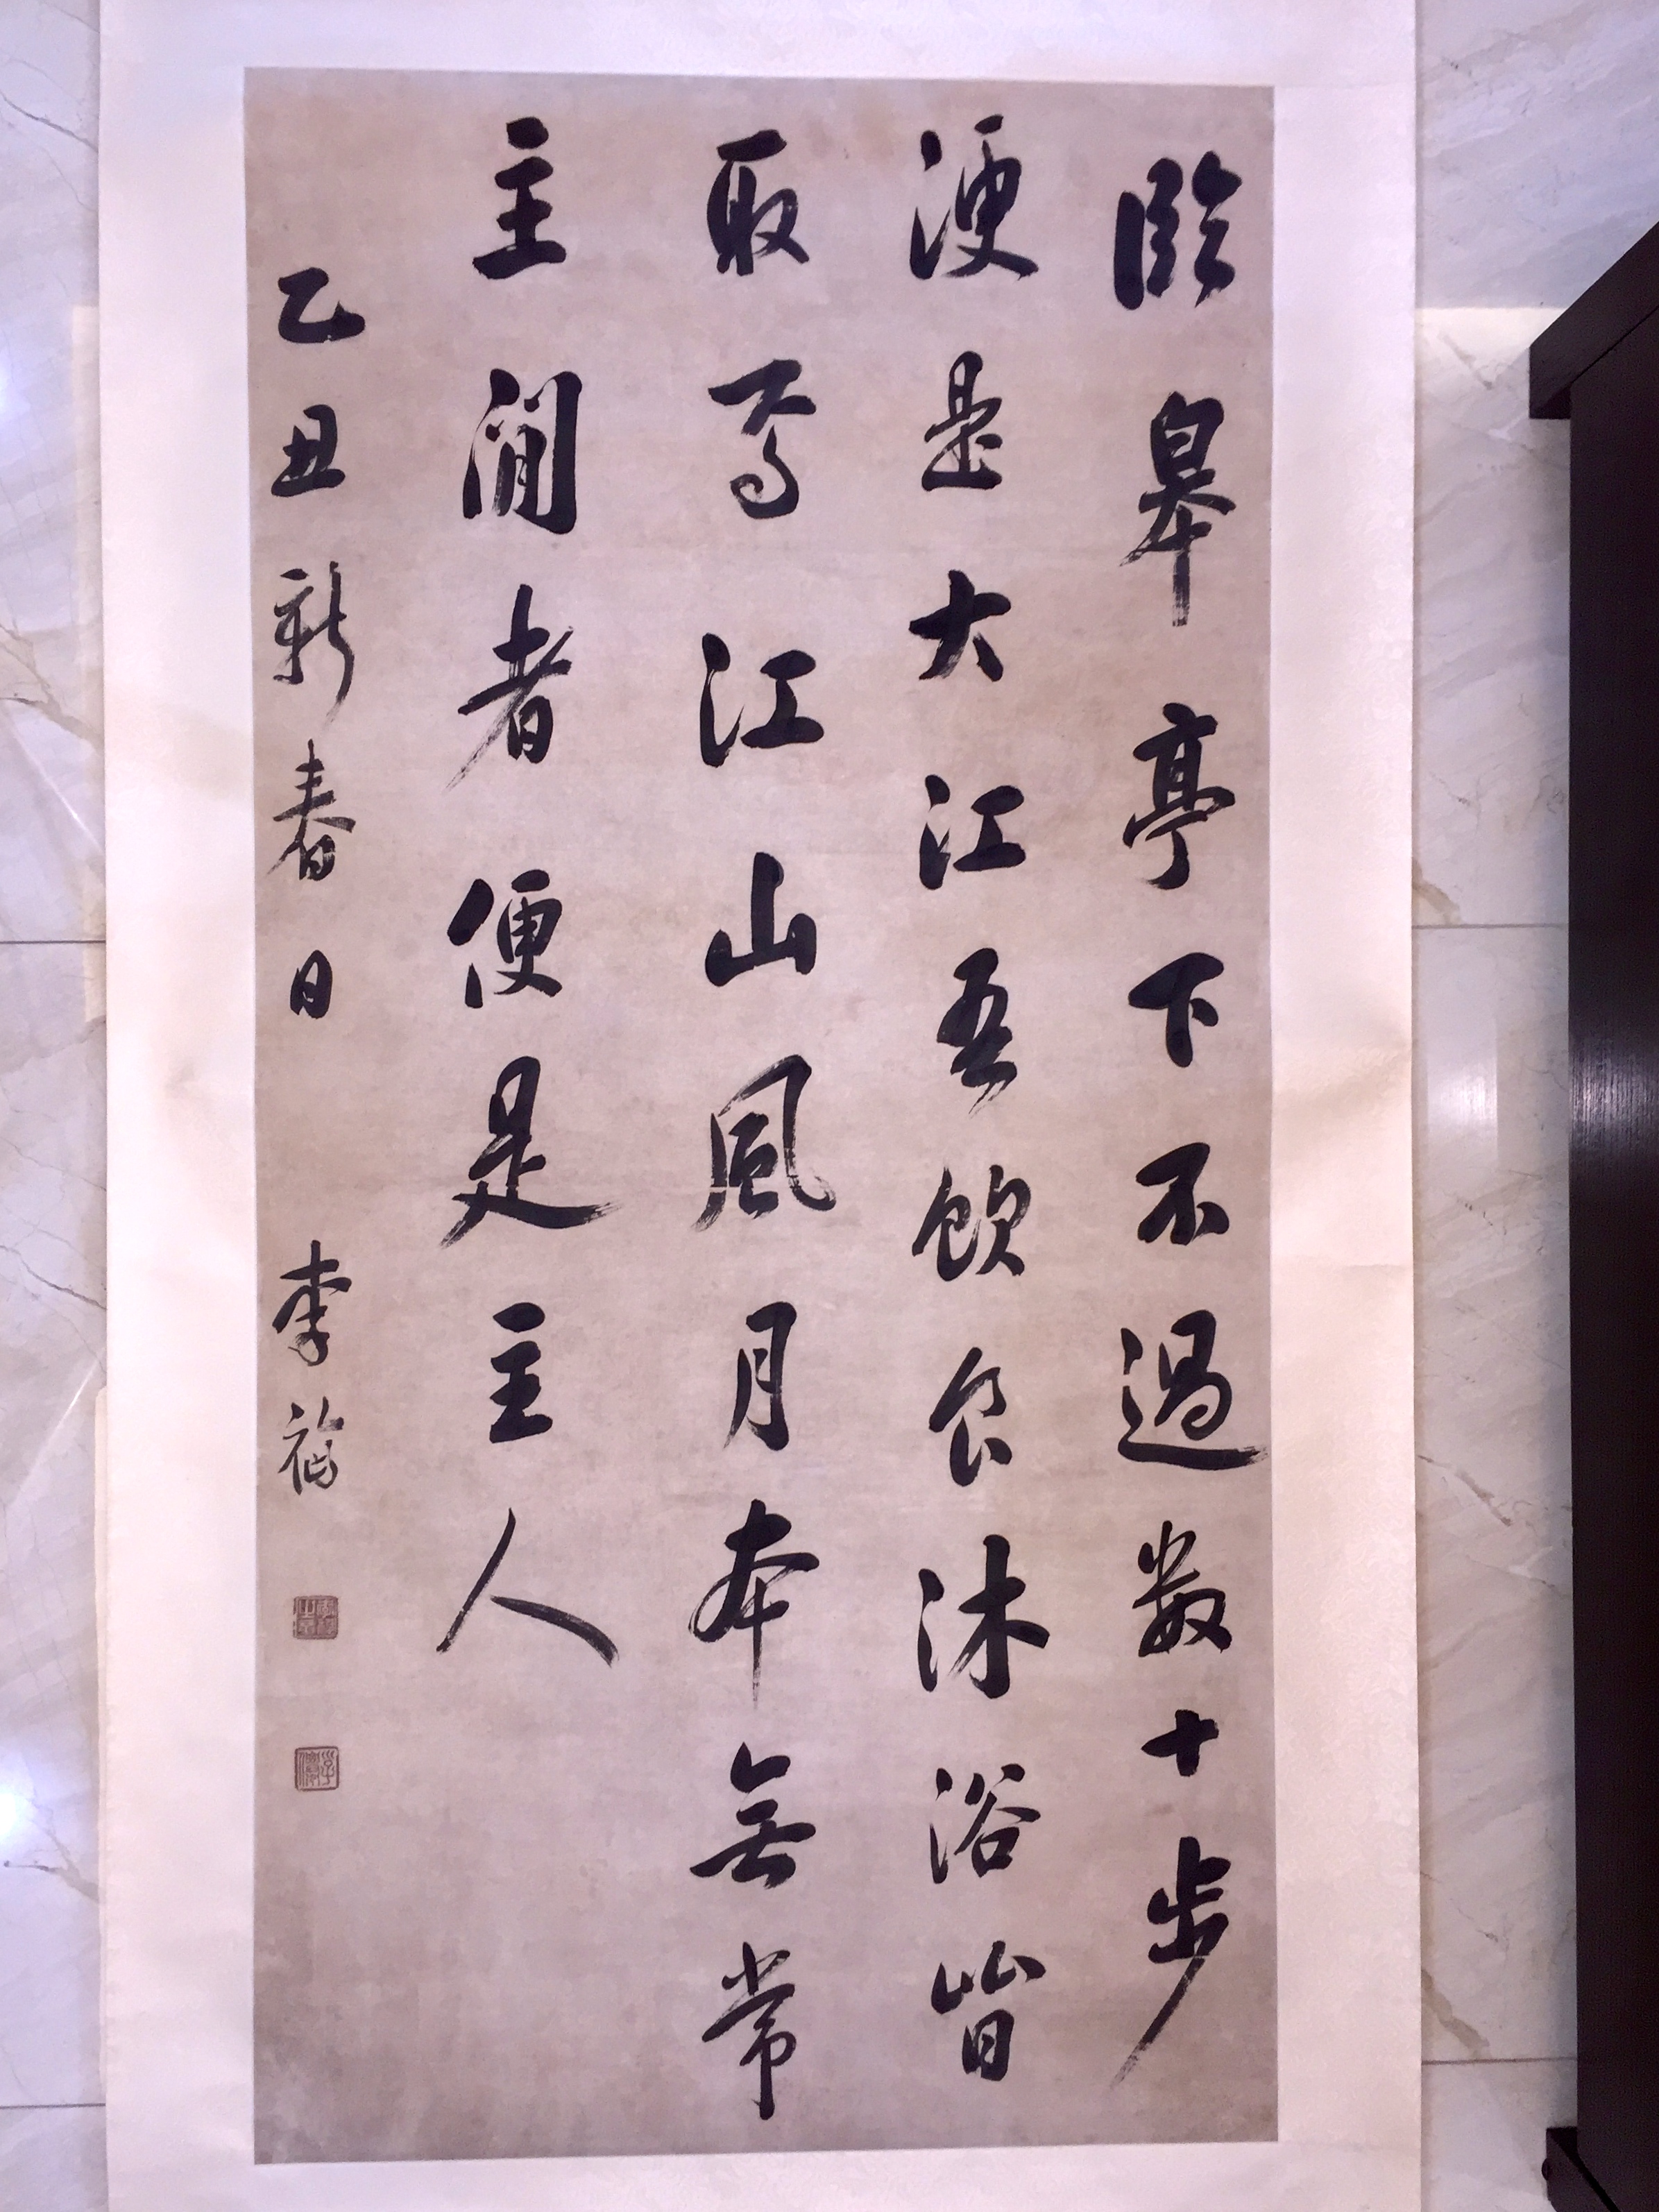 臨皋亭下不過數十步
便是大江吾飲食沐浴皆
取焉江山風月本無常
主閒者便是主人
乙丑新春日 李